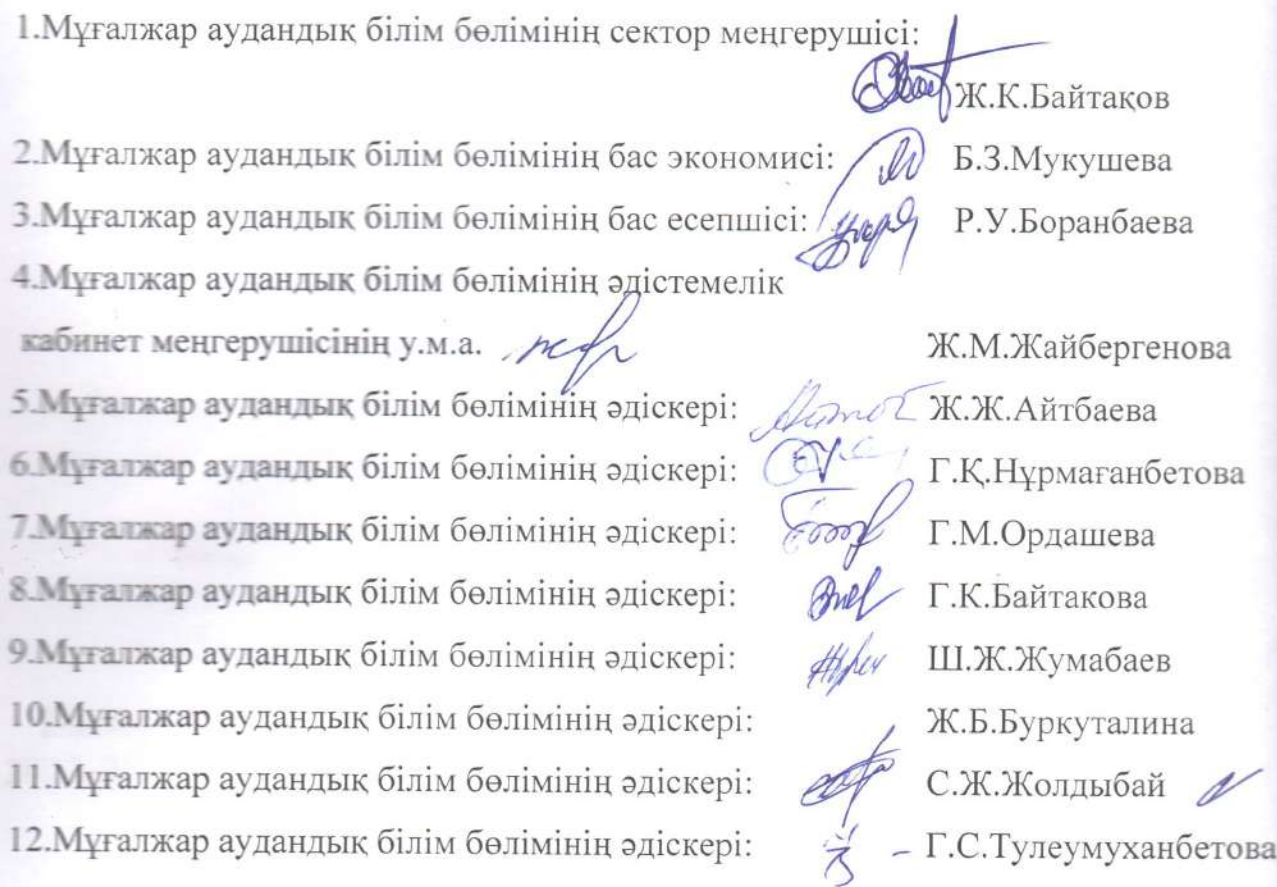 1.Мұғалжар аудандық білім бөлімінің сектор меңгерушісі:
Ж.К.Байтақов
2.Мұғалжар аудандық білім бөлімінің бас экономисі: Б.З.Мукушева
3.Мұғалжар аудандық білім бөлімінің бас есепшісі: Р.У.Боранбаева
4.Мұғалжар аудандық білім бөлімінің әдістемелік
кабинет меңгерушісінің у.м.а. Ж.М.Жайбергенова
5.Мұғалжар аудандық білім бөлімінің әдіскері: Ж.Ж.Айтбаева
6.Мұғалжар аудандық білім бөлімінің әдіскері: Г.Қ.Нұрмағанбетова
7.Мұғалжар аудандық білім бөлімінің әдіскері: Г.М.Ордашева
8.Мұғалжар аудандық білім бөлімінің әдіскері: Г.К.Байтакова
9.Мұғалжар аудандық білім бөлімінің әдіскері: Ш.Ж.Жумабаев
10.Мұғалжар аудандық білім бөлімінің әдіскері: Ж.Б.Буркуталина
11.Мұғалжар аудандық білім бөлімінің әдіскері: С.Ж.Жолдыбай
12.Мұғалжар аудандық білім бөлімінің әдіскері: Г.С.Тулеумуханбетова